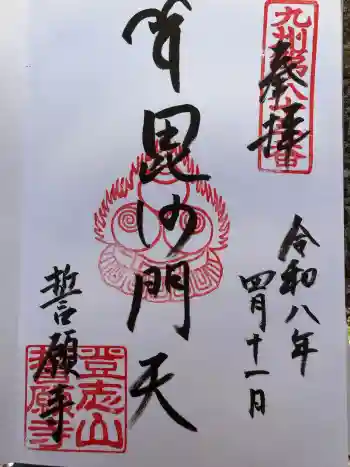 奉拝
令和八年
四月十一日
毘沙門天
誓願寺
登志山
誓願寺